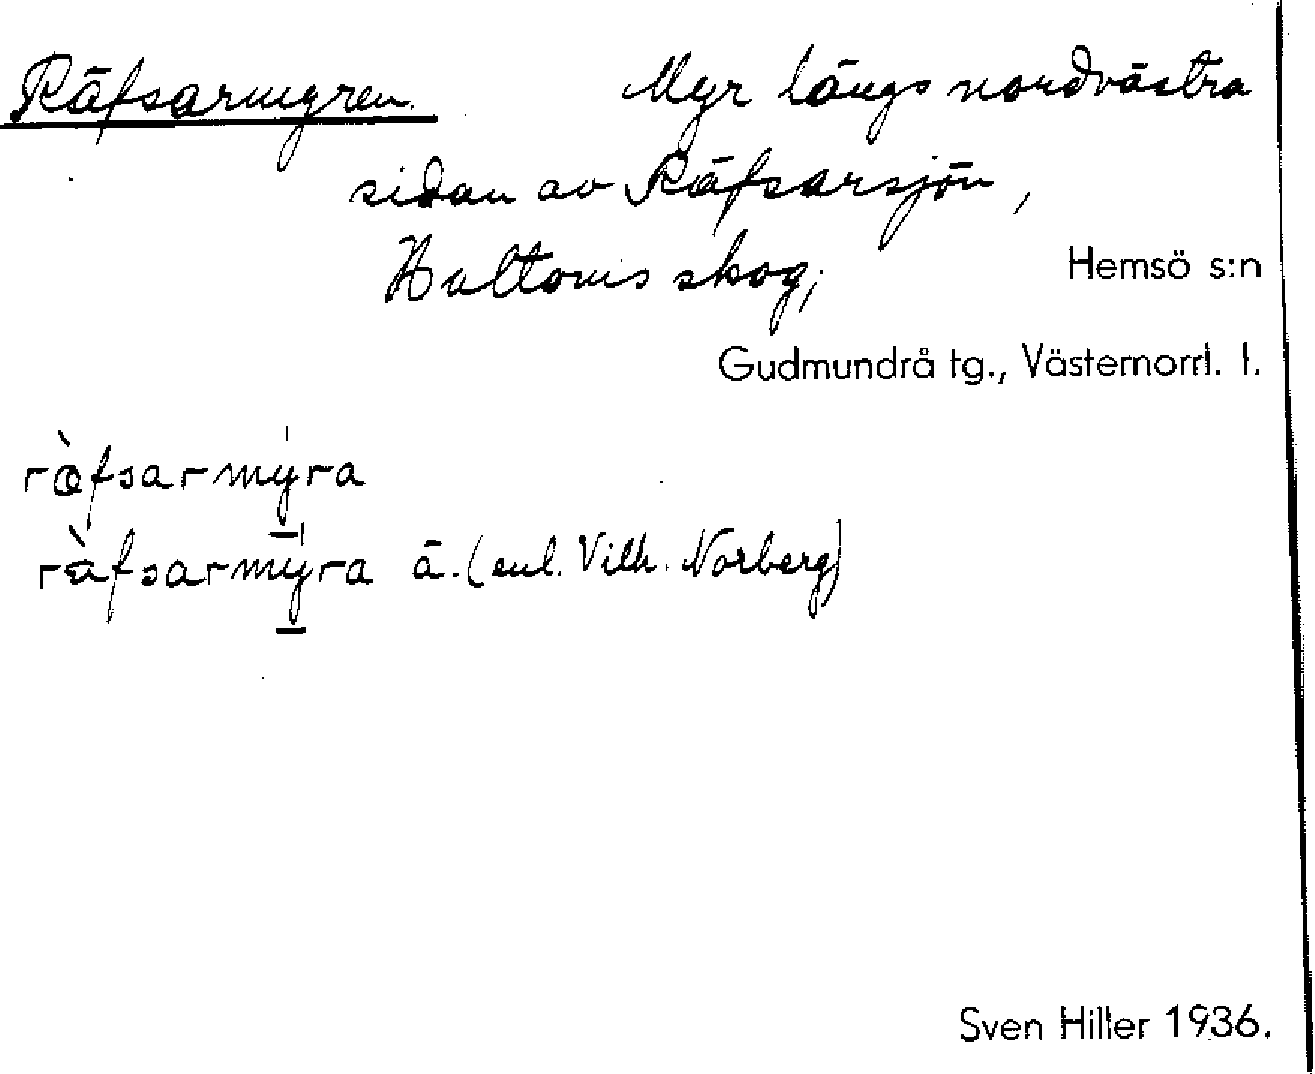 Räfsarmyren. Myr längs nordvästra
sidan av Räfsarsjön,
Haltorns skog,
Hemsö s:n
Gudmundrå tg., Västernorrl. l.
ræ̀fsarmýra
rä̀fsarmýra ä. (enl. Vilh. Norberg)
Sven Hiller 1936.